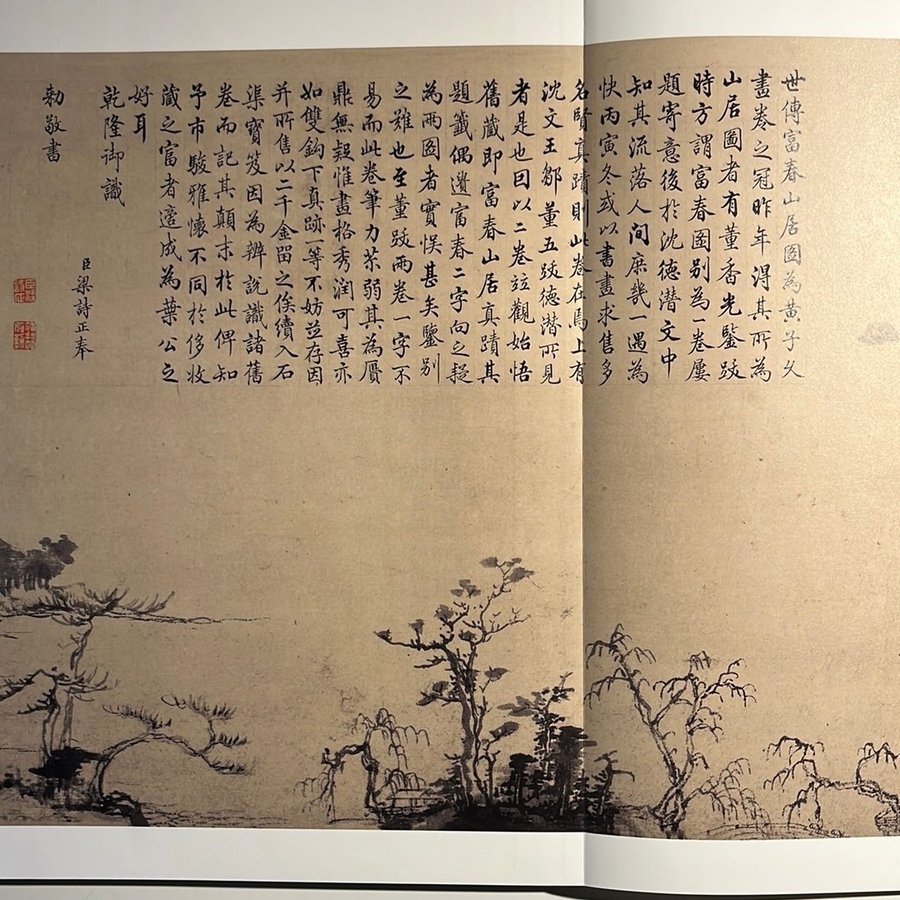 世傳富春山居圖為黃子久
畫卷之冠昨年得其所為
山居圖者有董香光鑒跋
時方謂富春圖别為一卷屢
題寄意後於沈德潛文中
知其流落人間庶幾一遇為
快丙寅冬或以書畫求售多
名賢真蹟則此卷在焉上有
沈文王鄒董五跋德潛所見
者是也因以二卷竝觀始悟
舊藏即富春山居真蹟其
題籤偶遺富春二字向之疑
為兩圖者實悮甚矣鑒别
之難也至董跋兩卷一字不
易而此卷筆力苶弱其為贋
鼎無疑惟畫格秀潤可喜亦
如雙鈎下真跡一等不妨竝存因
并所售以二千金留之俟續入石
渠寶笈因為辨說識諸舊
卷而記其顛末於此俾知
予市駿雅懷不同於侈收
藏之富者遽成為葉公之
好耳
乾隆御識
臣梁詩正奉
勅敬書